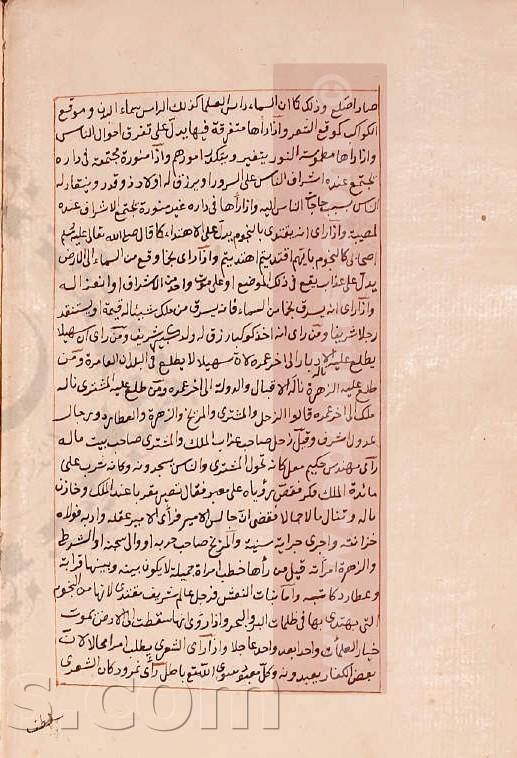 صار اضلع وذلك كما ان السماء راس العلما كذلك الراس سماء البدن وموقع
الكواكب كموقع الشعر واذا راها متفرقة فيها يدل على تفرق احوال الناس
واذا راها مطموسة النور يتغير ويتكدر امورهم واذا منورة مجتمعة في داره
تجتمع عنده اشراف الناس على السرور او يرزق له اولاد ذو قدر وينقاد له
الناس بسبب حاجات الناس اليه واذا راها في داره غير منورة تجتمع الاشراف عنده
لمصيبة واذا راى انه يقتدى بالنجوم يدل على الاهتداء كما قال صلى الله تعالى عليه وسلم
اصحابي كالنجوم بايهم اقتديتم اهتديتم واذا راى نجما وقع من السماء الى الارض
يدل على عذاب يقع في ذلك الموضع او على موت واحد من الاشراف او انعزاله
واذا راى انه يسرق نجما من السماء فانه يسرق من ملك شيئا له قيمة او يستنقد
رجلا شريفا ومن راى انه اخذ كوكبا رزق له ولد كبير شريف ومن راى ان سهيلا
يطلع عليه الادبار الى اخر عمره لان سهيلا لا يطلع في البلدان العامرة ومن
طلع عليه الزهرة ناله الاقبال والدولة الى اخر عمره ومن طلع عليه المشترى ناله
ملك الى اخر عمره قالوا الزحل والمشترى والمريخ والزهرة والعطارد رجال
عدول مشرف وقيل زحل صاحب عذاب الملك والمشترى صاحب بيت ماله
راى مهندس حكيم معل كانه تحول المشترى والناس يسجدونه وكانه شرب على
مائدة الملك فقص رؤياه على معبر فقال تصير مقربا عند الملك وخازن
ماله وتنال مالا جمالا فقضى ان جالس الامير فراى الامير عقله وادبه فولاه
خزائنه واجرى جراية سنية والمريخ صاحب حربه او والى سجنه او الشرط
والزهرة امراته قيل من راها خطب امراة جميلة لا يكون بينه وبينها قرابة
وعطارد كاتبه واما بنات النعش فرجل عالم شريف مقتدى لانها من النجوم
التى يهتدى بها في ظلمات البر والبحر واذا روى انها سقطت الى الارض يموت
خيار العلماء واحدا بعد واحد عاجلا واذا راى الشعرى يطلب امرا محالا لان
بعض الكفار يعبدونه وكل معبود سوى الله تع باطل راى نمرود كان الشعرى
s.com